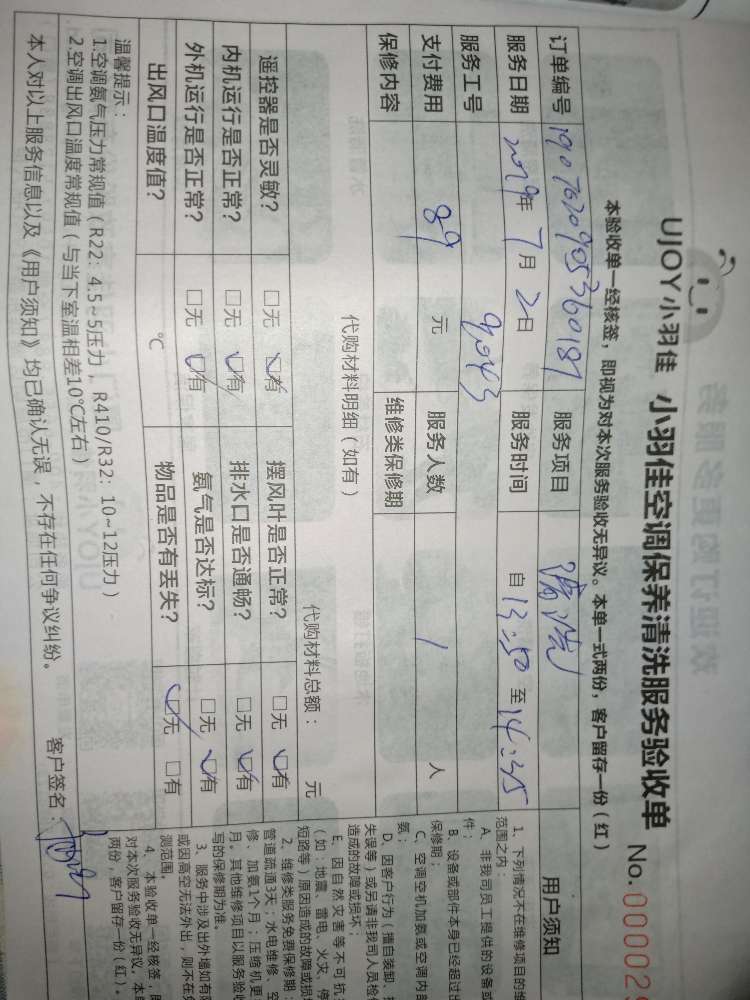 UJOY小羽佳 小羽佳空调保养清洗服务验收单 No.00002
本验收单一经核签，即视为对本次服务验收无异议。本单一式两份，客户留存一份（红）
订单编号 服务项目 清洗
服务日期 2019年 7月 2日 服务时间 自 13:50 至 14:35
服务工号 9043
支付费用 89 元 服务人数 1 人
保修内容 维修类保修期
代购材料明细（如有） 代购材料总额： 元
遥控器是否灵敏？ □无 ☑有 摆风叶是否正常？ □无 ☑有
内机运行是否正常？ □无 ☑有 排水口是否通畅？ □无 ☑有
外机运行是否正常？ □无 ☑有 氨气是否达标？ □无 ☑有
出风口温度值？ ℃ 物品是否有丢失？ ☑无 □有
温馨提示：
1.空调氨气压力常规值（R22：4.5~5压力，R410/R32：10~12压力）
2.空调出风口温度常规值（与当下室温相差10℃左右）
本人对以上服务信息以及《用户须知》均已确认无误，不存在任何争议纠纷。 客户签名：
用户须知
1、下列情况不在维修项目的维
范围之内：
A、非我司员工提供的设备或
件；
B、设备或部件本身已经超过出
保修期；
C、空调空机加氨或空调内部
氨；
D、因客户行为（擅自装卸、
失误等）或另请非我司人员检修
造成的故障或损坏；
E、因自然灾害等不可抗
（如：地震、雷电、火灾、停
短路等）原因造成的故障或损
2、维修类服务免费保修期：
管道疏通3天；水电维修、空
修、加氨1个月；压缩机更
月。其他维修项目以服务验收
写的保修期为准。
3、服务中涉及出外墙如有
或因高空无法外出，则不在
测范围。
4、本验收单一经核签，即
对本次服务验收无异议。本
两份，客户留存一份（红）。